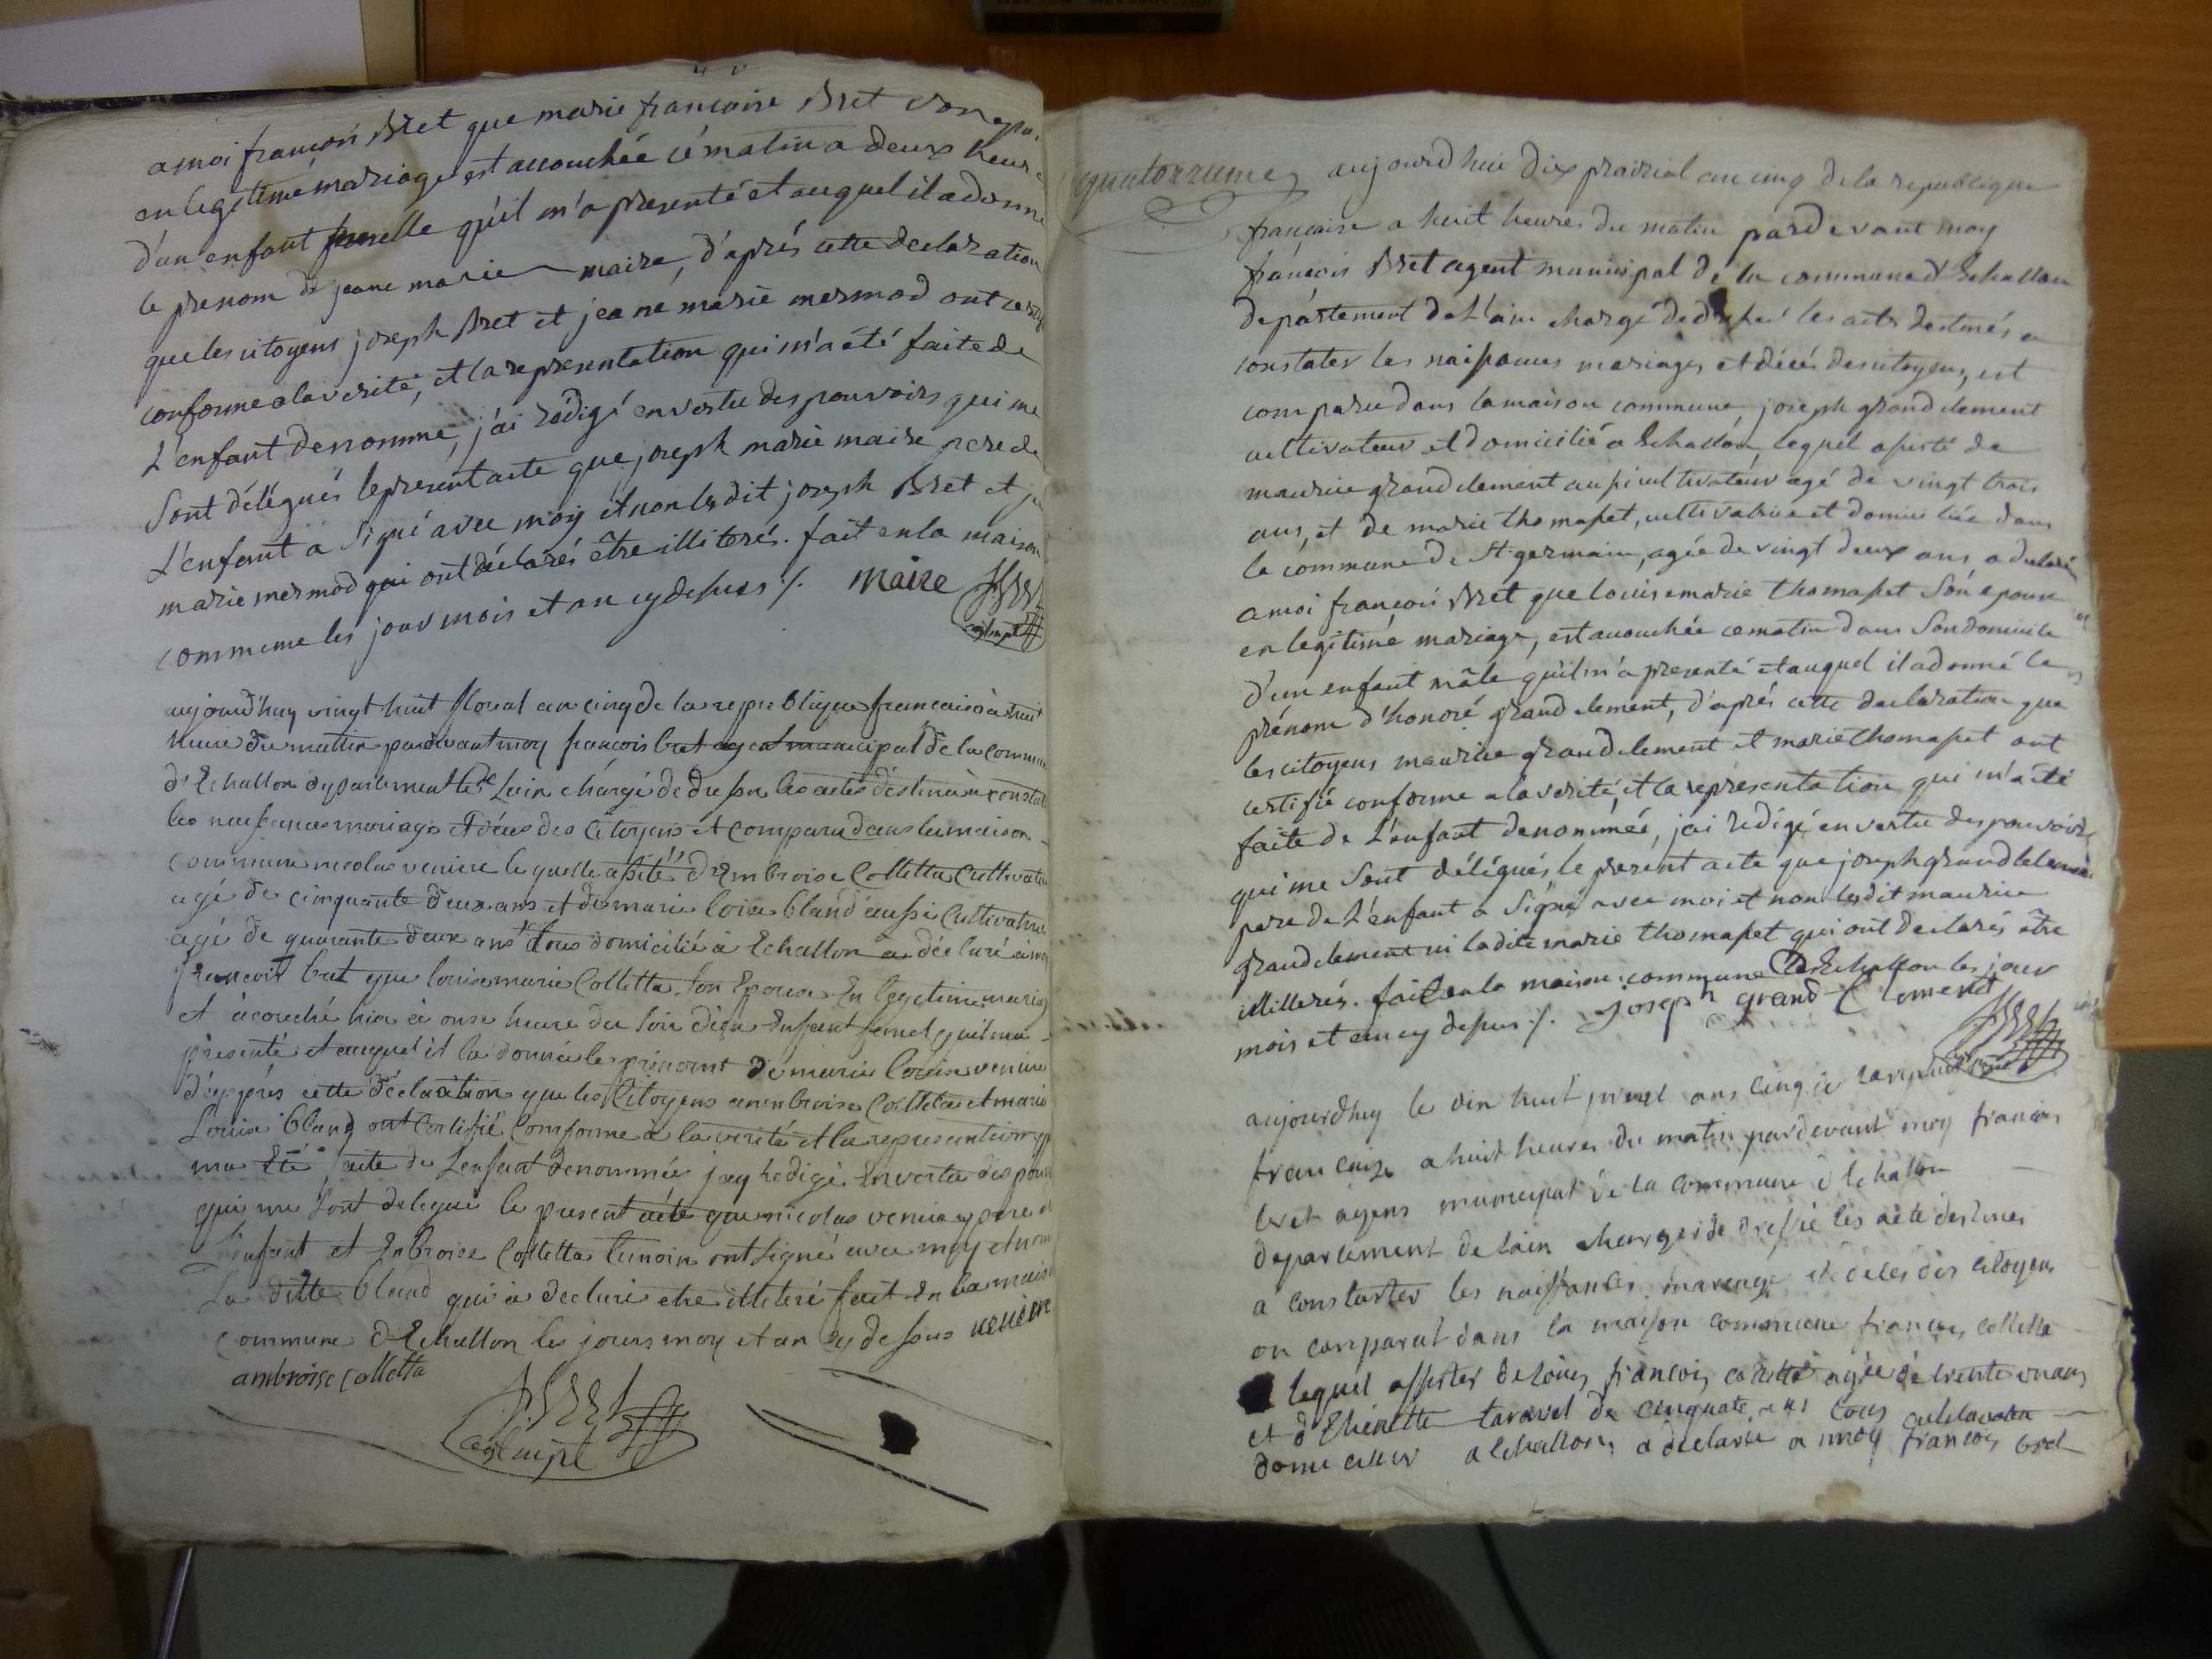 a moi francois Bret que marie francoise Bret son epou
en legitime mariage est accouchée cé matin a deux heure
d'un enfant femelle qu'il m'a presenté et auquel il a donné
le prenom de jeane marie maire, d'aprés cette declaration
que les citoyens joseph Bret et jeane marie mermod ont certif
conforme a la verité, et la representation qui m'a été faite de
L'enfant denommé, j'ai rédigé en vertu des pouvoirs qui me
Sont délégués le present acte que joseph marie maire pere de
L'enfant a signé avec moy et non lesdit joseph Bret et je
marie mermod qui ont déclarés être illiterés. fait en la maison
commune les jour mois et an cy dessus ./. maire Bret
agt mpl
aujourd'huy vingt huit floreal an cinq de la republique francaise à huit
heure du mattin pardevant moy francois bret agent municipal de la commun
d'Echallon departement de Lain chargé de dresser les actes déstiné à constat
les naissances mariages et déces des Citoyens et comparu dans la maison
commune nicolas veniere le quelle assité d'Embroise Colletta Cultivateur
agé de cinquante deux ans et de marie loise bland aussi Cultivatrice
agé de quarante deux ans tous domicilié à Echallon a déclaré à moy
francois bret que louise marie Colletta son Epouse en legetime mariag
et àcouché hier à onse heure du soir d'un Enfant femel quil ma
présenté et auquel il la donné le prénom de marie louise veniere
d'apprés cette déclaration que les Citoyens aembroise Colletta et marie
Louise bland ont Certifié Comforme à la verité et la representation qui
ma Eté faite de Lenfant denommée j'ay redigé en vertu des pouv
qui me sont delegué le present acte que nicolas veniere pere de
L'enfant et Enbroise Colletta temoin ont signé avec moy et non
La ditte bland qui à declaré etre illiteré fait en la maison
commune d'Echallon les jours moy et an cy dessus veniere
ambroise colletta
Bret
agt mpl
quatorzieme aujourd'hui dix prairial an cinq de la republique
française a huit heures du matin pardevant moy
françois Bret agent municipal de la commune d'Echallon
departement de L'ain chargé de dresser les actes destinés a
constater les naissances mariages et décés des citoyens, est
comparu dans la maison commune, joseph grandclement
cultivateur et domicilié a Echallon, lequel assisté de
maurice grandclement aussi cultivateur agé de vingt trois
ans, et de marie thomasset, cultivatrice et domiciliée dans
la commune de St germain, agée de vingt deux ans a declaré
a moi françois Bret que louise marie thomasset son epouse
en legitime mariage, est accouchée ce matin dans son domicile
d'un enfant mâle qu'il m'a presenté et auquel il a donné le
prénom d'honoré grandclement, d'aprés cette declaration que
les citoyens maurice grandclement et marie thomasset ont
certifié conforme a la verité, et la représentation qui m'a été
faite de L'enfant denommée, j'ai redigé en vertu des pouvoirs
qui me sont délégués le present acte que joseph grandclement
pere de L'enfant a signé avec moi et non lesdit maurice
grandclement ni ladite marie thomasset qui ont declarés être
illiterés. fait en la maison commune d'Echallon les jour
mois et an cy dessus ./. Joseph grand Clement
Bret
aujourd'huy le vin huit ans cinq de la republique
francaize a huit heures du matin pardevant moy francois
bret agens municipat de la commune d'Echallon
departement de lain charger de dressé les acte destines
a constarter les naissances, mareage et deces des citoyens
on comparut dans la maison commune francois collette
lequel assister de louis francois collette agée de trente un ans
et d'Thénette taravel de cinquate ans tous cultivateur
domicillier a Echallon, a declaré a moy francois bret